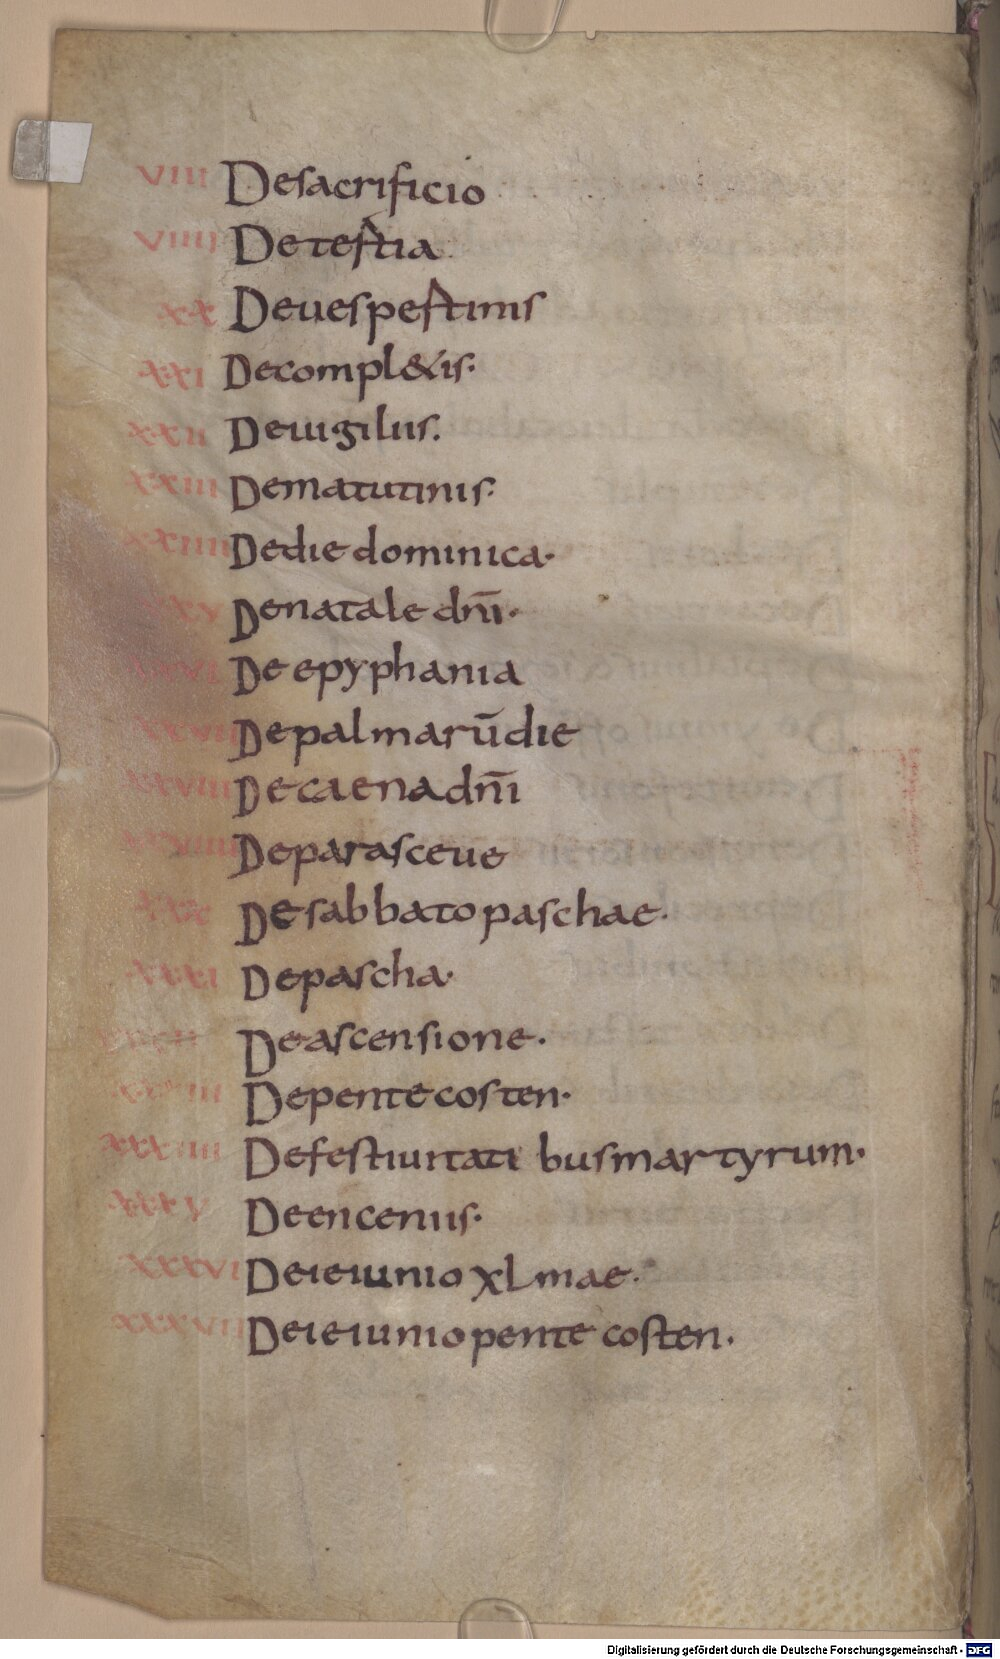 VIII Desacrificio
VIIII De tertia
XX Deuespertinis
XXI Decompl&is·
XXII Deuigiliis.
XXIII Dematutinis·
XXIIII Dedie dominica·
XXV Denatale dn̄i·
XXVI De epyphania
XXVII Depalmarū die
XXVIII De caena dn̄i
XXVIIII Deparasceue
XXX De sabbato paschae·
XXXI Depascha·
XXXII Deascensione·
XXXIII Depentecosten·
XXXIIII Defestiuitati busmartyrum·
XXXV Deenceniis·
XXXVI Deieiunio XLmae·
XXXVII Deieiunio pente costen·
Digitalisierung gefördert durch die Deutsche Forschungsgemeinschaft - DFG